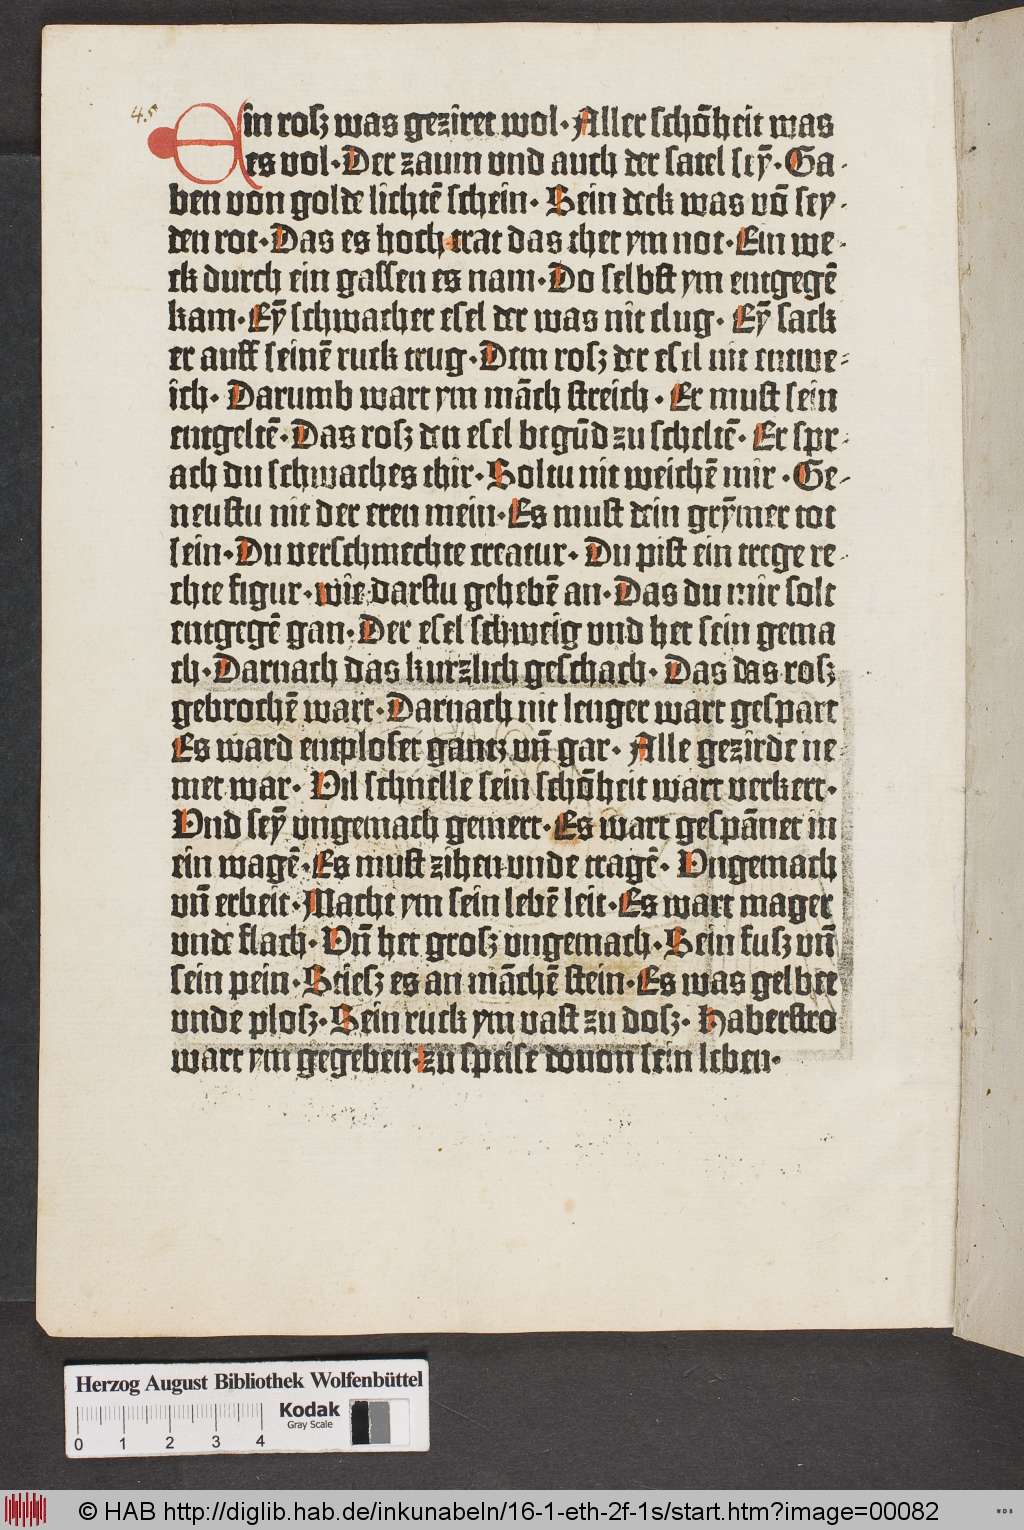 45
Ein rosz was geziret wol· Aller schõheit was
es vol· Der zaum vnd auch der satel seȳ· Ga⸗
ben von golde lichtē schein· Sein deck was võ sey⸗
den rot· Das es hoch trat das thet ym not· Ein we⸗
ck durch ein gassen es nam· Do selbst ym entgegē
kam· Eȳ schwacher esel der was nit clug· Eȳ sack
er auff seinē ruck trug· Dem rosz der esel nit entwe⸗
ich· Darumb wart ym mãch streich· Er must sein
entgeltē· Das rosz den esel begũd zu scheltē· Er spr⸗
ach du schwaches thir· Soltu nit weichē mir· Ge⸗
neustu nit der eren mein· Es must dein grȳmer tot
sein· Du verschmechte creatur· Du pist ein trege re⸗
chte figur· wie darstu gehebē an· Das du mir solt
entgegē gan· Der esel schweig vnd het sein gema
ch· Darnach das kurzlich geschach· Das das rosz
gebrochē wart· Darnach nit lenger wart gespart
Es ward entploset gantz vñ gar· Alle gezirde ne
met war· Vil schnelle sein schõheit wart verkert·
Vnd seȳ vngemach gemert· Es wart gespãnet in
ein wagē· Es must zihen vnde tragē· Vngemach
vñ erbeit· Macht ym sein lebē leit· Es wart mager
vnde flach· Vñ het grosz vngemach· Sein fusz vñ
sein pein· Stiesz es an mãchē stein· Es was gelber
vnde plosz· Sein ruck ym vast zu dosz· Haberstro
wart ym gegeben· zu speise douon sein leben·
Herzog August Bibliothek Wolfenbüttel
Kodak
Gray Scale
0 1 2 3 4
© HAB http://diglib.hab.de/inkunabeln/16-1-eth-2f-1s/start.htm?image=00082